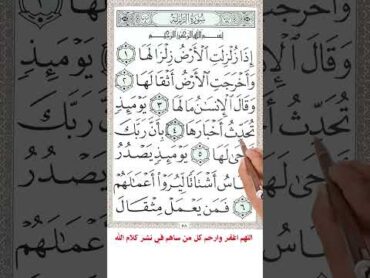 سُورَةُ الزَّلْزَلَةِ
بِسْمِ اللَّهِ الرَّحْمَٰنِ الرَّحِيمِ
إِذَا زُلْزِلَتِ الْأَرْضُ زِلْزَالَهَا ١
وَأَخْرَجَتِ الْأَرْضُ أَثْقَالَهَا ٢
وَقَالَ الْإِنسَٰنُ مَا لَهَا ٣ يَوْمَئِذٍ
تُحَدِّثُ أَخْبَارَهَا ٤ بِأَنَّ رَبَّكَ
أَوْحَىٰ لَهَا ٥ يَوْمَئِذٍ يَصْدُرُ
النَّاسُ أَشْتَاتًا لِّيُرَوْا أَعْمَٰلَهُمْ
٦ فَمَن يَعْمَلْ مِثْقَالَ
اللهم اغفر وارحم كل من ساهم في نشر كلام الله